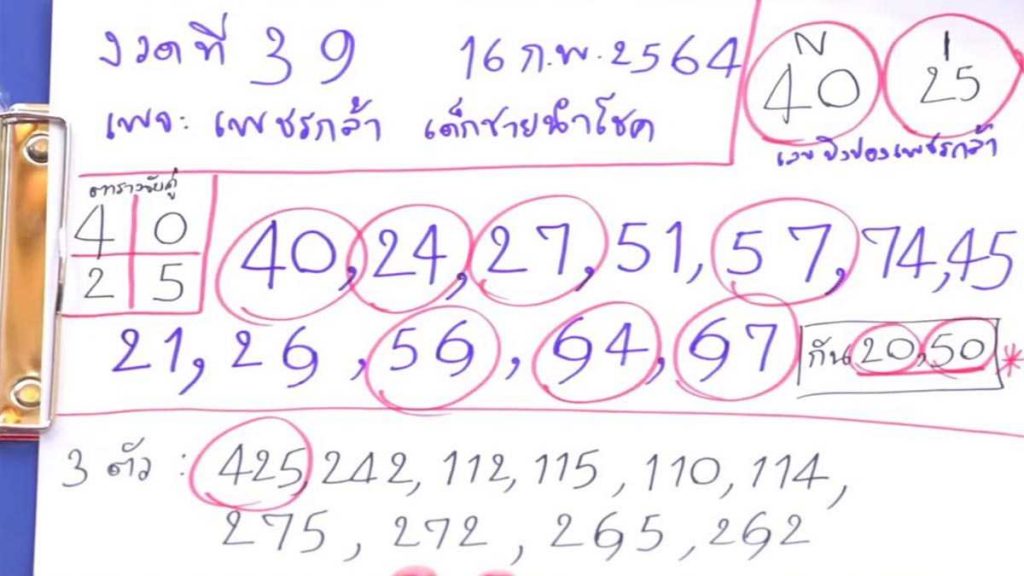 งวดที่ 39 16 ก.พ. 2564
เพจ: เพชรกล้า เด็กชายนำโชค
N I
40 25
เลขปิงปองเพชรกล้า
ตารางจับคู่
4 0
2 5
40, 24, 27, 51, 57, 74, 45
21, 26, 56, 64, 67 กัน 20, 50 *
3 ตัว : 425, 242, 112, 115, 110, 114,
275, 272, 265, 262